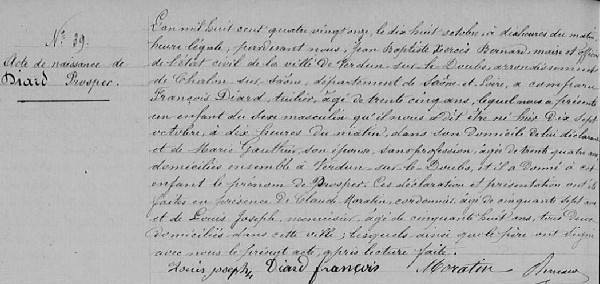 N.° 39.
Acte de naissance de
Diard Prosper.
L'an mil huit cent quatre vingt onze, le dix huit octobre, à dix heures du matin
heure légale, pardevant nous, Jean Baptiste Bernard, maire et officier
de l'état civil de la ville de Verdun-sur-le-Doubs, arrondissement
de Chalon-sur-Saône, département de Saône-et-Loire, a comparu
François Diard, tuilier, âgé de trente cinq ans, lequel nous a présenté
un enfant du sexe masculin qu'il nous a dit être né hier Dix sept
octobre, à dix heures du matin, dans son domicile de lui déclarant
et de Marie Gauthier, son épouse, sans profession, âgée de trente quatre ans
domiciliés ensemble à Verdun-sur-le-Doubs, et il a donné à cet
enfant le prénom de Prosper. Ces déclaration et présentation ont été
faites en présence de Claude Moratin, cordonnier, âgé de cinquante sept ans
et de Louis Joseph, menuisier, âgé de cinquante huit ans, tous deux
domiciliés dans cette ville; lesquels ainsi que le père ont signé
avec nous le présent acte, après lecture faite.
Louis joseph Diard françois Moratin Bernard